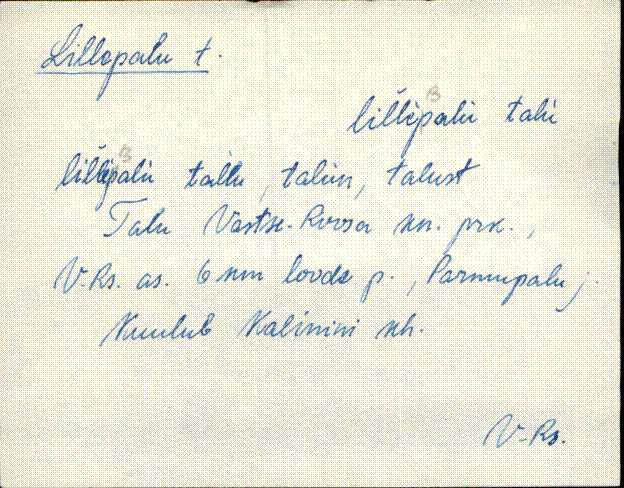 Lillepalu t.
lillepalu talu
lillepalu tallu, talun, talust
Talu Vastse-Roosa kn. prk.,
V-Rs. as. 6 km loode p., Parmupalu j.
Kuulub Kalinini kh.
V-Rs.